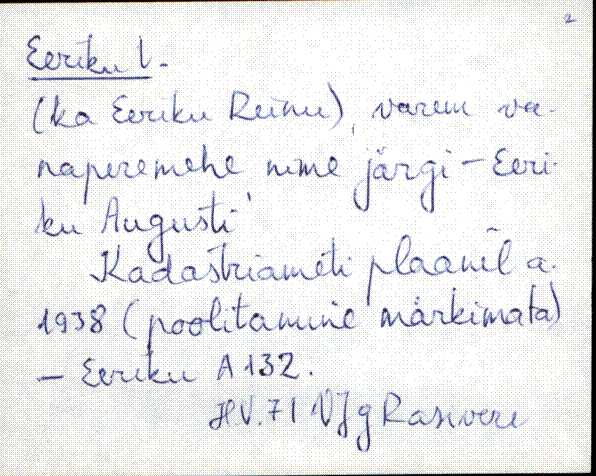 2
Eeriku l.
(ka Eeriku Reinu), varem va-
naperemehe nime järgi – Eeri-
ku Augusti
Kadastriameti plaanil a.
1938 (poolitamine märkimata)
– Eeriku A 132.
HV. 71 VJg Rasivere